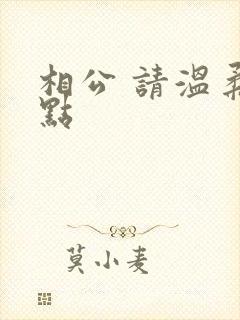 相公 請溫柔
點
莫小麦